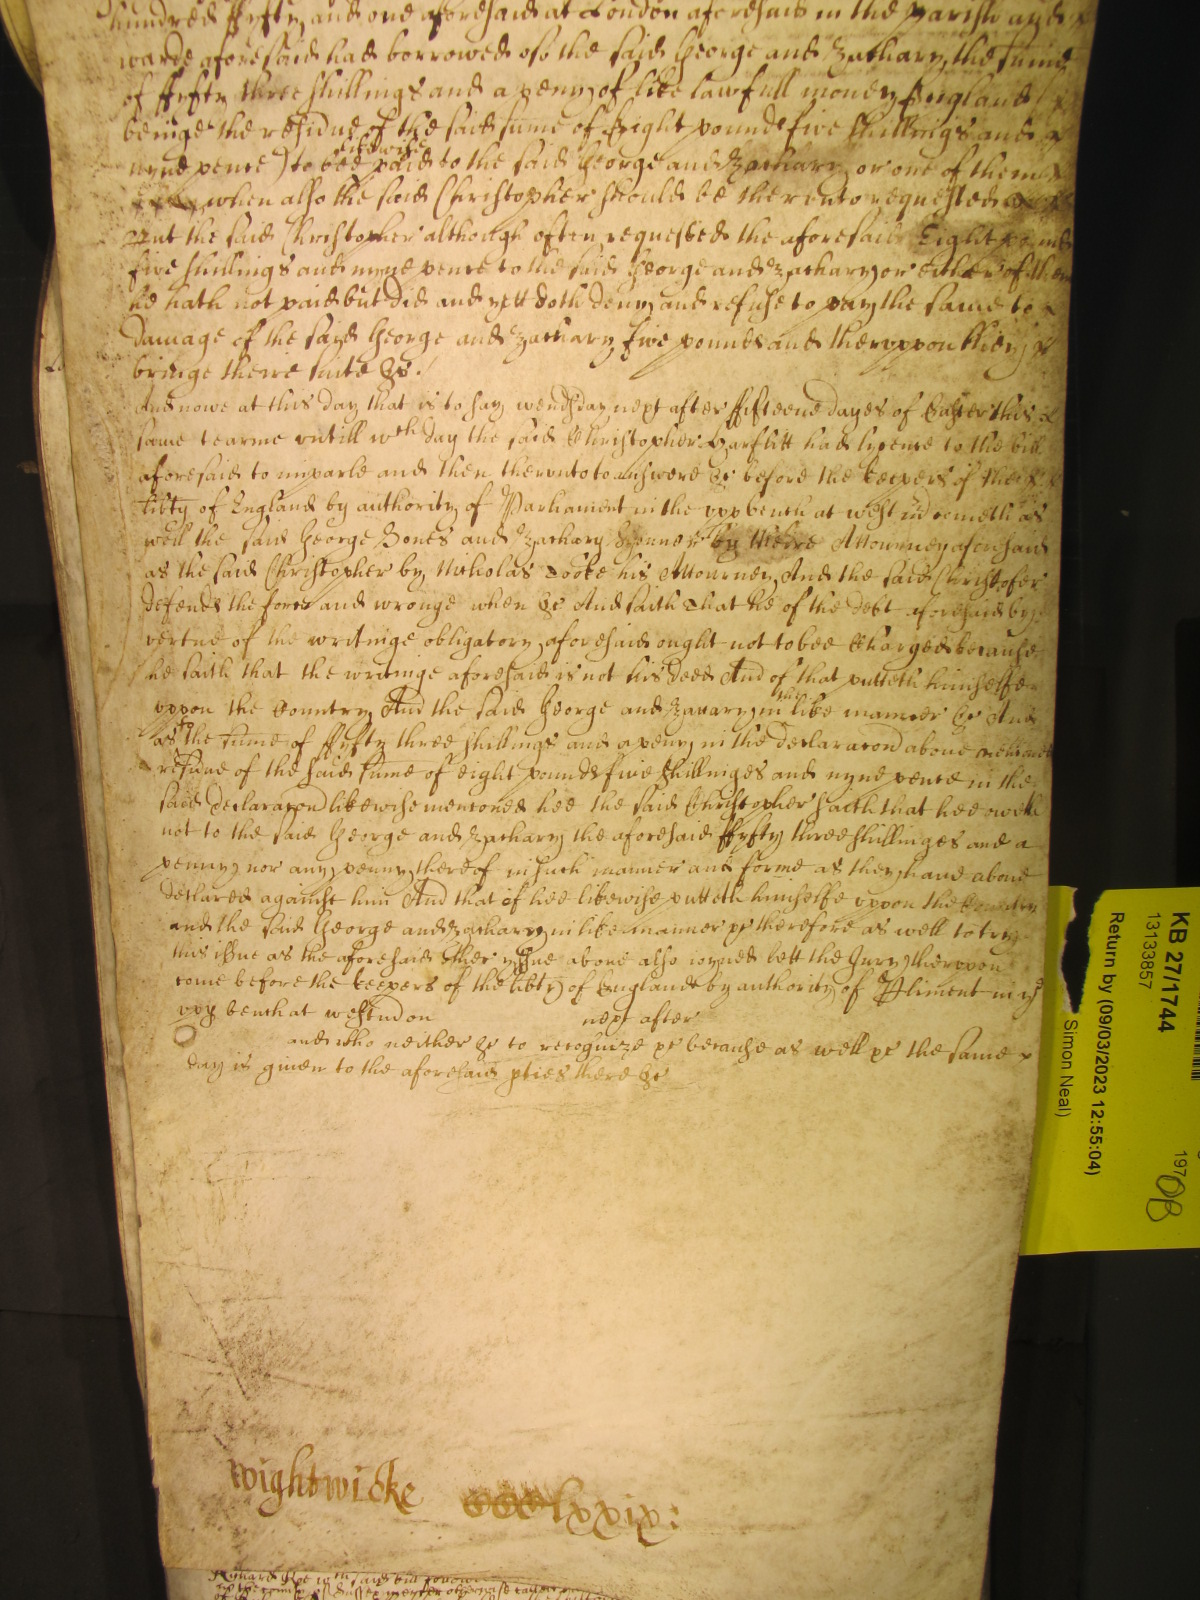 hundred ffyfty and one aforesaid at London aforesaid in the parish and
warde aforesaid had borrowed of the said George and Zachary the sume
of ffyfty three shillings and a peny of like lawfull money of England
beinge the residue of the said sume of Eight pounds five shillings and
nyne pence) to bee likewise paid to the said George and Zachary or one of them
when also the said Christopher should be thereunto requested
yet the said Christopher although often requested the aforesaid Eight pounds
five shillings and nyne pence to the said George and Zachary or either of them
he hath not paid but did and yett doth deny and refuse to pay the same to
damage of the said George and Zachary five pounds and thereuppon they
bringe theire suite &c.
And nowe at this day that is to say wendsday next after fifteene dayes of Easter this
same tearme untill wch day the said Christopher Harflitt had lycence to the bill
aforesaid to imparle and then thereunto to answere &c before the keepers of the
libty of England by authority of Parliament in the upp bench at westm cometh as
well the said George Bones and Zachary by theire Attourney aforesaid
as the said Christopher by Nicholas Cooke his Attourney And the said Christofer
defends the force and wronge when &c And saith That he of the debt aforesaid by
vertue of the writinge obligatory aforesaid ought not to bee Charged because
he saith that the writinge aforesaid is not his deed And of that putteth himselfe
uppon the Country And the said George and Zacary in the like manner &c And
as to the sume of ffyfty three shillings and a peny in the declaracon above
residue of the said sume of eight pounds five shillinges and nyne pence in the
said declaracon likewise menconed hee the said Christopher saith that hee oweth
not to the said George and Zachary the aforesaid ffyfty three shillinges and a
penny nor any penny thereof in such manner and forme as they have above
declared against him And that of hee likewise putteth himselfe uppon the Country
and the said George and Zachary in like manner &c therefore as well to try
this issue as the aforesaid other yssue above also ioyned lett the Jury thereuppon
come before the keepers of the libty of England by authority of Pliment in ye
upp bench at westm on next after
and who neither &c to recognize &c because as well &c the same
day is given to the aforesaid pties there &c
Wightwicke CCClxxix:
Richard Roe
KB 27/1744
13133857
Return by (09/03/2023 12:55:04)
Simon Neal)
197